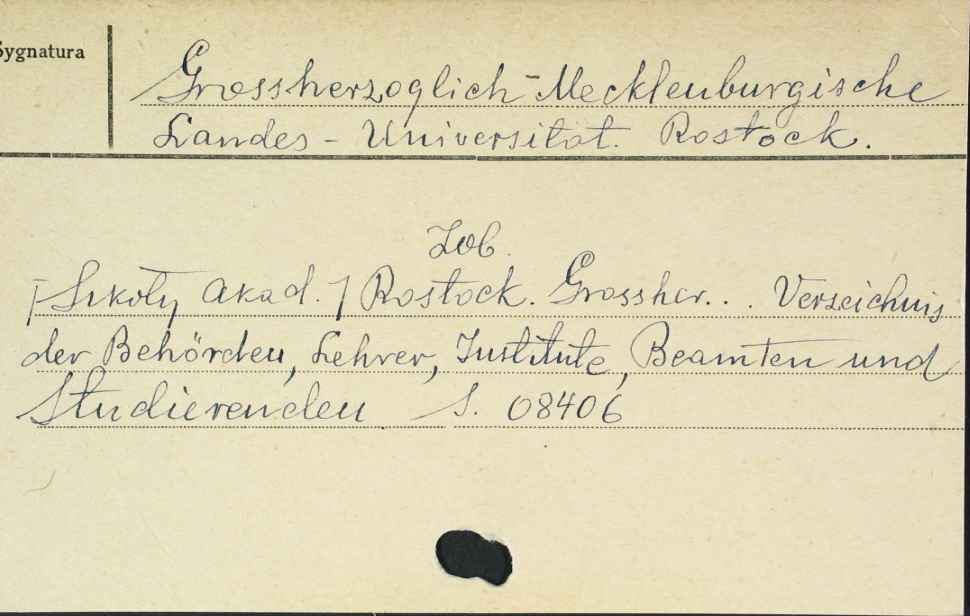 Sygnatura
Grossherzoglich-Mecklenburgische
Landes-Universität. Rostock.
Zob.
[Szkoły Akad.] Rostock. Grossher... Verzeichnis
der Behörden, Lehrer, Institute, Beamten und
Studierenden S. 08406